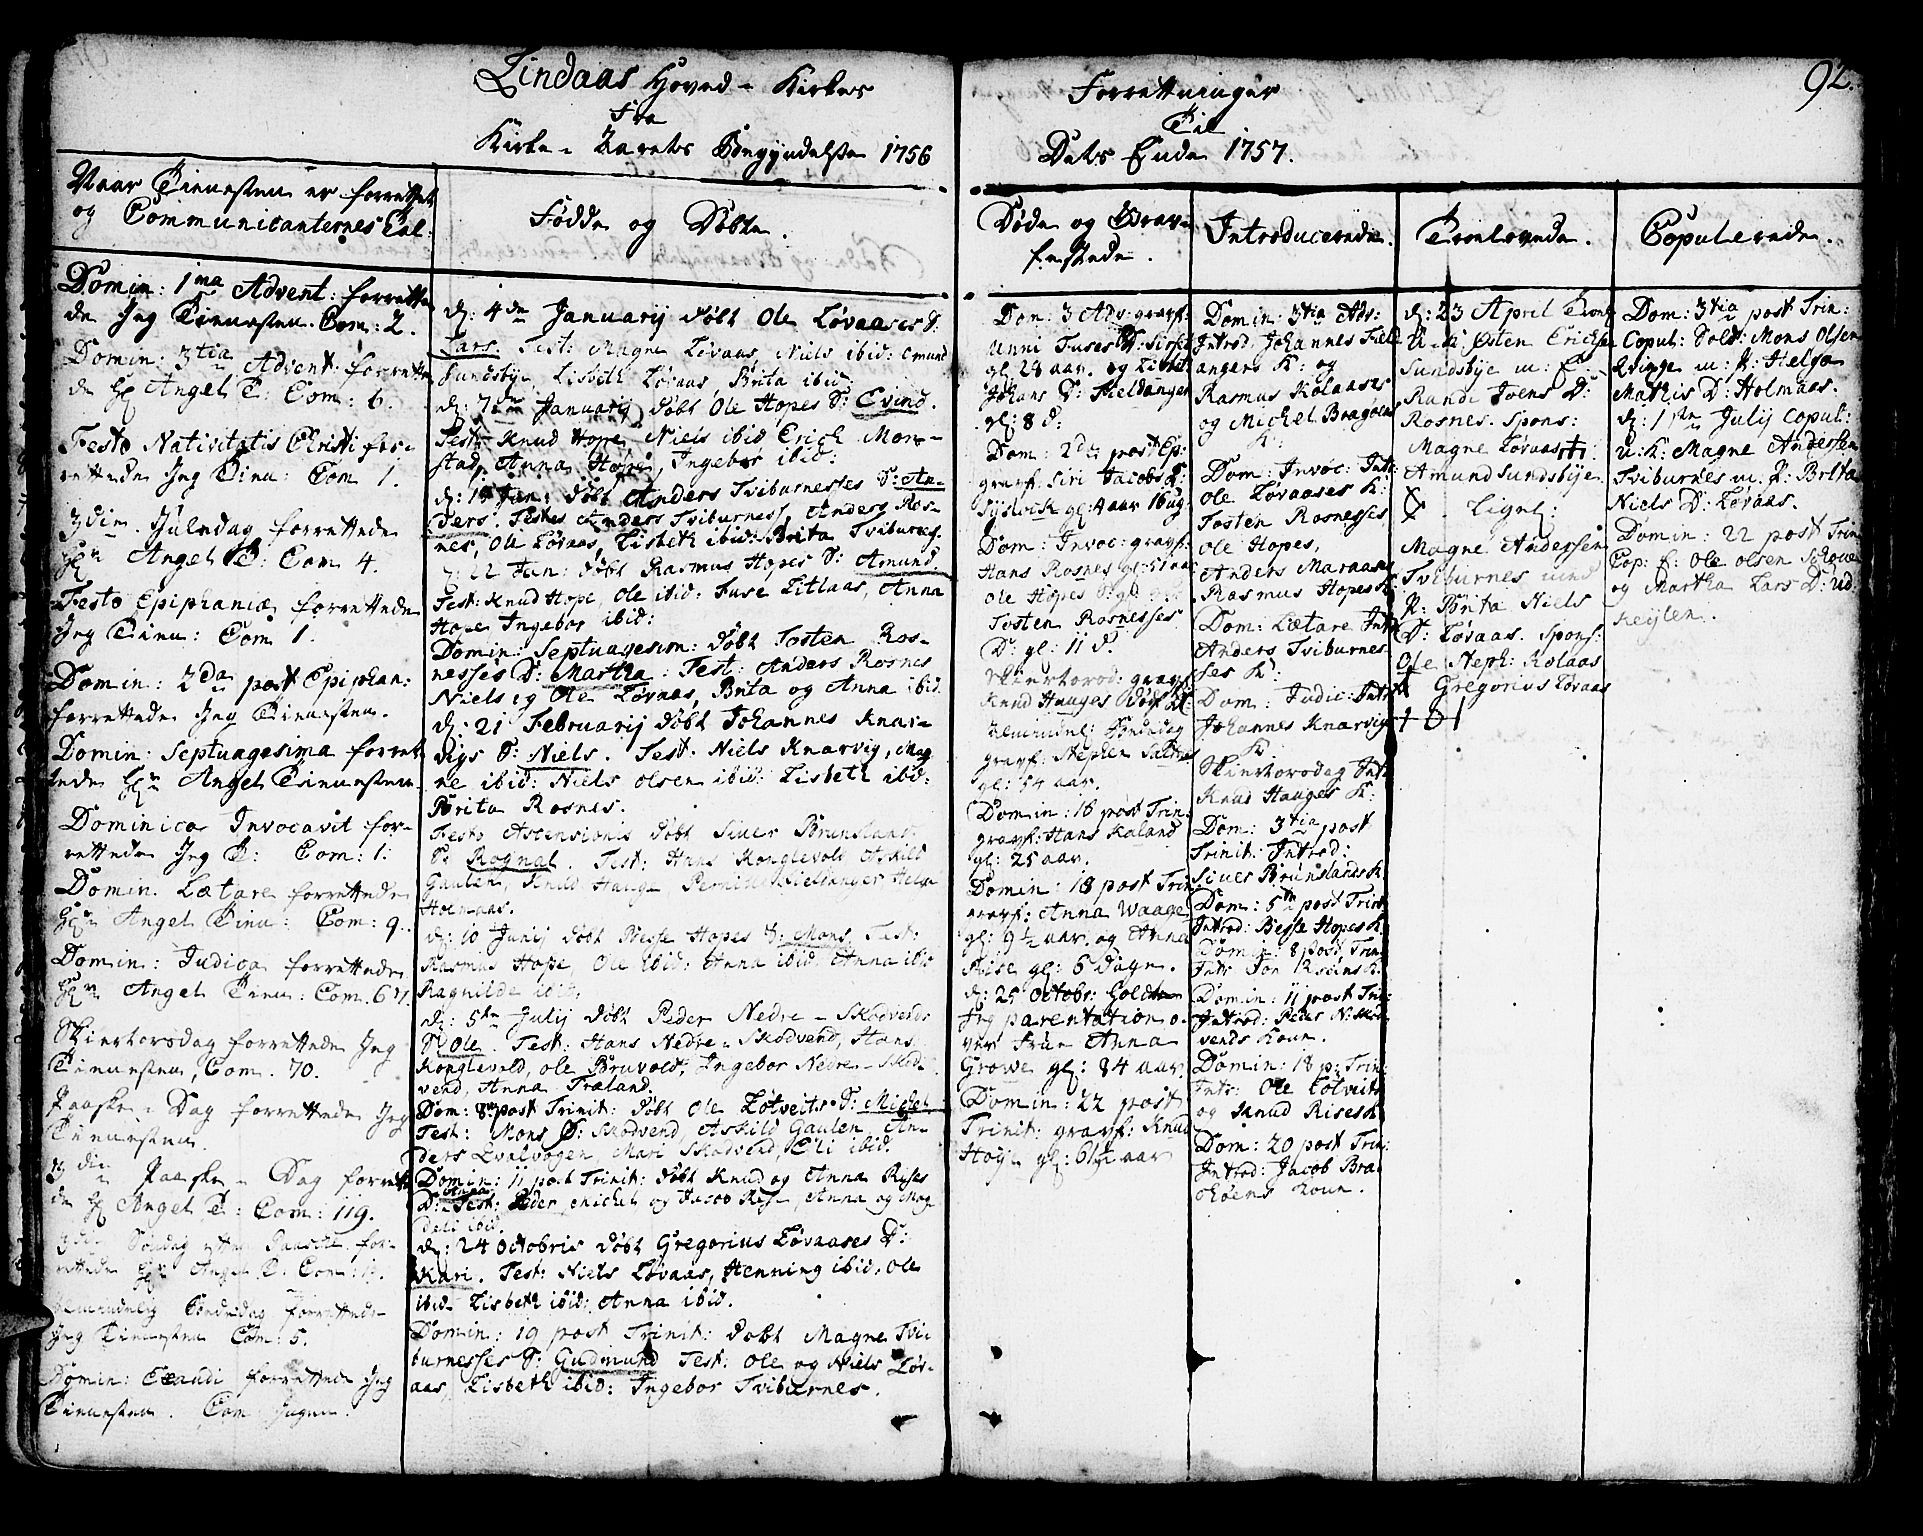 Lindaas Hoved-Kirkes
Fra
Kirke-Aarets Begyndelse 1756
Forrettninger
Til
Dets Ende 1757.
92.
Naar Tienesten er forrettet
og Communicanternes Tal.
Domin: 1ma Advent: forrette
de Jeg Tienesten. Com: 2.
Domin: 3tia Advent: forrette
de Hr Angel T: Com: 6.
Festo Nativitatis Christi for-
rettede Jeg Tien: Com 1.
3die Juledag forrettede
Hr Angel T: Com 4.
Festo Epiphaniæ forrettede
Jeg Tien: Com 1.
Domin: 2da post Epiphan:
forrettede Jeg Tienesten.
Domin: Septuagesima forret
tede Hr Angel Tienesten.
Dominica Invocavit for-
rettede Jeg T: Com: 1:
Domin. Lætare forrettede
Hr Angel Tien: Com: 9.
Domin: Judica forrettede
Hr Angel Tien: Com. 67.
Skiertorsdag forrettede Jeg
Tienesten, Com. 70.
Paaske-Dag forrettede Jeg
Tienesten.
3die Paaske-Dag forrette
de Hr Angel T: Com: 119.
Søndag efter Paaske for-
rettede Hr Angel T: Com:
Almindelig Bededag forrettede
Jeg Tienesten Com: 5.
Domin: Exaudi forrettede Jeg
Tienesten. Com: Ingen.
Fødde og Døbte.
d: 4de Januarij døbt Ole Løvaases S:
Lars. Test: Magne Løvaas, Niels ibid: Omund
Sundsbye, Lisbeth Løvaas, Brita ibid:
d: 7de Januarij døbt Ole Hopes S: Evind.
Test: Knud Hope, Niels ibid Erich Mon-
stad, Anna Hope, Ingebor ibid:
Jan: døbt Anders Tviburnesses S: An-
ders. Testes Anders Tviburnes, Anders Ros-
nes, Ole Løvaas, Lisbeth ibid: Brita Tviburnes.
d: 22 Jan: døbt Rasmus Hopes S: Amund
Test: Knud Hope, Ole ibid: Fuse Litlaas, Anna
Hope Ingebor ibid:
Domin: Septuagesim: døbt Tosten Ros-
nesses D: Martha. Test: Anders Rosnes
Niels og Ole Løvaas, Brita og Anna ibid.
d: 21 Februarij døbt Johannes Knar-
vigs S: Niels. Test: Niels Knarvig, Mag
ne ibid: Niels Olsen ibid: Lisbeth ibid:
Brita Rosnes.
Festo Ascensionis døbt Siver Brunslands
S: Rognal. Test: Hans Konglevold Askild
Gaulen, Knud Hauge Pernille Kieldanger Helga
Holmaas.
d: 10 Junij døbt Besse Hopes S: Mons. Test:
Rasmus Hope, Ole ibid: Anna ibid Anna ibid
Ragnilde ibid.
d: 5te Julij døbt Peder Nedre-Skodvends
S: Ole. Test: Hans Nedre-Skodvend, Hans
Konglevold, Ole Bruvold, Ingebor Nedre-Skod-
vend, Anna Træland.
Dom: 8 post Trinit: døbt Ole Lotveits S: Michel
Test: Mons Ø: Skodvend, Askild Gaulen, An-
ders Evalvogen Mari Skodvend, Eli ibid.
Domin: 11 post Trinit: døbt Knud og Anna Rises
D: Anna Test: Peder Michel og Jacob Rise, Anna og Mag
deli ibid.
d: 24 Octobris døbt Gregorius Løvaases D:
Kari. Test: Niels Løvaas, Henning ibid, Ole
ibid Lisbeth ibid: Anna ibid.
Domin: 19 post Trinit: døbt Magne Tvi-
burnesses S: Gudmund Test: Ole og Niels Løv-
aas, Lisbeth ibid: Ingebor Tviburnes.
Døde og Grav-
festede.
Dom: 3 Adv: gravf:
Unni Fuses D: Sirset
gl: 28 aar. og Lisbet
Johans D: Kieldanger
gl: 8 d:
Dom: 2da post Ep:
gravf: Siri Jacobs D:
Sislock gl: 4 aar 16 ug
Dom: Invoc: gravf:
Hans Rosnes gl: 51 aar
Ole Hopes S: gl
Tosten Rosnesses
D: gl: 11 d.
Skiertorsd: gravf
Knud Hauges
Almindel: Bededag
gravf: Stephen
gl: 54 aar.
Domin: 16 post Trin:
gravf: Hans Kaland
gl: 25 aar.
Domin: 18 post Trin
gravf: Anna Waage
gl: 9½ aar og Anna
Rise gl: 6 dage.
d: 25 Octobr: holdte
Jeg parentation o-
ver Frue Anna
Growe gl: 84 aar
Domin: 22 post
Trinit: gravf: Knud
Høye gl: 61½ aar
Introducerede.
Domin: 3tia Adv:
Introd: Johannes Kield
angers K: og
Rasmus Kolaases
og Michel Bragøens
K:
Dom: Invoc: Intr:
Ole Løvaases K:
Tosten Rosnesses
Ole Hopes,
Anders Maraases
Rasmus Hopes K:
Dom: Lætare Intr
Anders Tviburnes
ses K:
Dom: Judic: Intr
Johannes Knarvigs
K:
Skiertorsdag Intr
Knud Hauges K:
Dom: 3tia post
Trinit: Introd:
Siver Brunslands K:
Dom: 5te post Trin
Introd: Besse Hopes K:
Domin: 8 post Trin
Intr: Jon Risens K:
Domin: 11 post Tri:
Introd: Peder N: Skod-
vends Kone.
Domin: 18 p: Trin:
Intr: Ole Lotveits
og Knud Rises K:
Dom: 20 post Trin:
Introd: Jacob Bra-
Kone.
Troelovede.
d: 23 April Troel
U: K: Østen Erichs
Sundsbye m: P:
Randi Joens D:
Rosnes. Spons:
Magne Løvaas
Amund Sundsbye
Ligel:
Magne Andersen
Tviburnes med
P: Brita Niels
D: Løvaas. Spons:
Ole Steph: Kolaas
Gregorius Løvaas
Copulerede.
Dom: 3tia post Trin:
Copul: Sold: Mons Olsen
Qvinge m: P: Helga
Mathis D: Holmaas.
d: 1ste Julij Copul:
U: K: Magne Andersen
Tviburnes m: P: Brita
Niels D: Løvaas.
Domin: 22 post Trin
Cop: E: Ole Olsen
og Martha Lars D: Ud